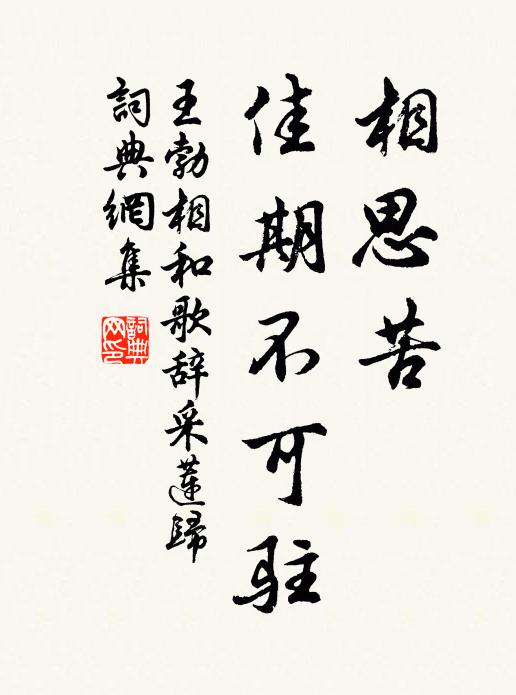 相思苦
佳期不可驻
王勃相和歌辞采蓮歸
詞典網集
詞典網印